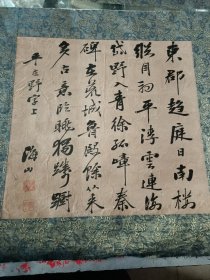 東郡趨庭日南樓
縱目初平浮雲連海
岱野入青徐孤嶂秦
碑在荒城魯殿餘从来
多古意臨眺獨躊躇
平在野字上